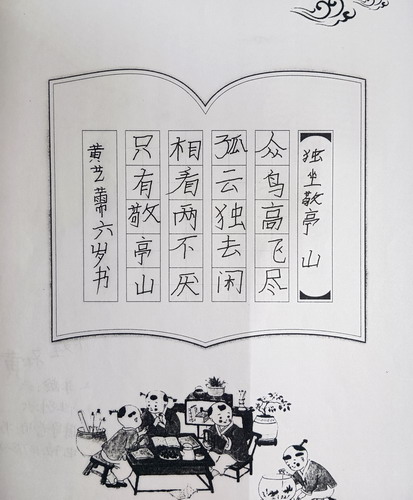 独坐敬亭山
众鸟高飞尽
孤云独去闲
相看两不厌
只有敬亭山
黄艺霈六岁书